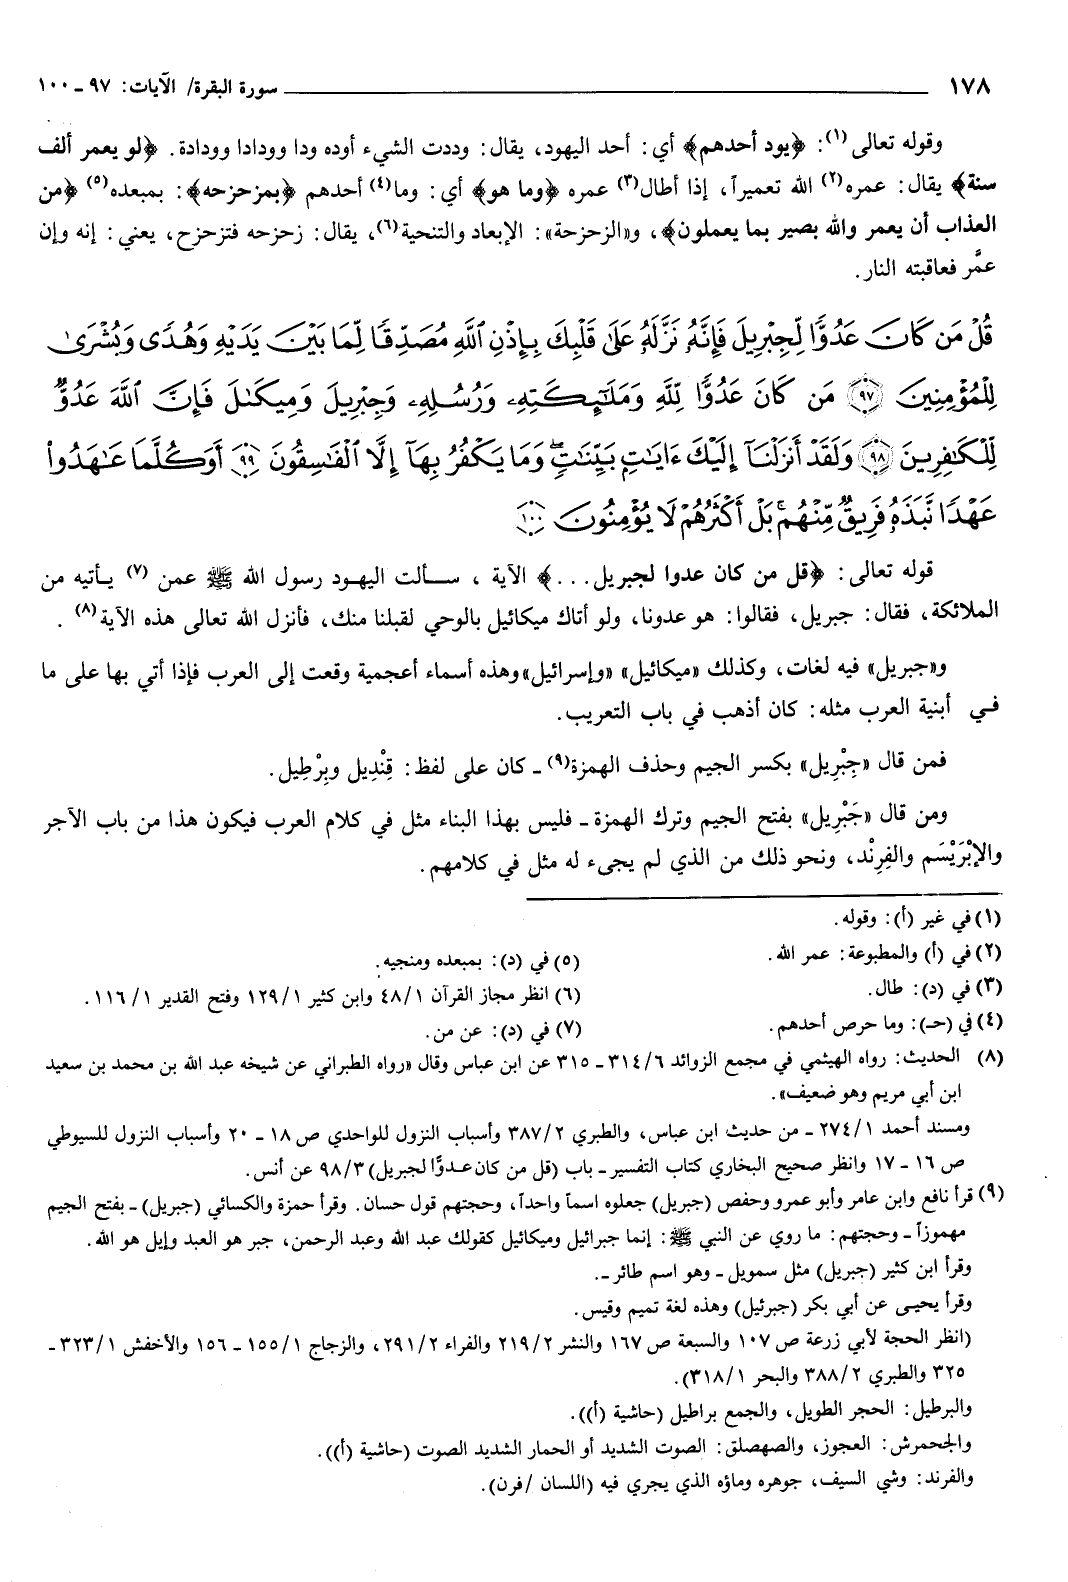 ١٧٨ سورة البقرة/ الآيات: ٩٧ ـ ١٠٠
وقوله تعالى(١): ﴿يود أحدهم﴾ أي: أحد اليهود، يقال: وددت الشيء أوده ودا وودادا وودادة. ﴿لو يعمر ألف
سنة﴾ يقال: عمره(٢) الله تعميراً، إذا أطال(٣) عمره ﴿وما هو﴾ أي: وما(٤) أحدهم ﴿بمزحزحه﴾: بمبعده(٥) ﴿من
العذاب أن يعمر والله بصير بما يعملون﴾، و«الزحزحة»: الإبعاد والتنحية(٦)، يقال: زحزحه فتزحزح، يعني: إنه وإن
عمَّر فعاقبته النار.
قُلْ مَن كَانَ عَدُوًّا لِّجِبْرِيلَ فَإِنَّهُ نَزَّلَهُ عَلَىٰ قَلْبِكَ بِإِذْنِ ٱللَّهِ مُصَدِّقًا لِّمَا بَيْنَ يَدَيْهِ وَهُدًى وَبُشْرَىٰ
لِلْمُؤْمِنِينَ ٩٧ مَن كَانَ عَدُوًّا لِّلَّهِ وَمَلَـٰٓئِكَتِهِۦ وَرُسُلِهِۦ وَجِبْرِيلَ وَمِيكَىٰلَ فَإِنَّ ٱللَّهَ عَدُوٌّ
لِّلْكَـٰفِرِينَ ٩٨ وَلَقَدْ أَنزَلْنَآ إِلَيْكَ ءَايَـٰتٍۭ بَيِّنَـٰتٍ ۖ وَمَا يَكْفُرُ بِهَآ إِلَّا ٱلْفَـٰسِقُونَ ٩٩ أَوَكُلَّمَا عَـٰهَدُوا۟
عَهْدًا نَّبَذَهُۥ فَرِيقٌ مِّنْهُم ۚ بَلْ أَكْثَرُهُمْ لَا يُؤْمِنُونَ ١٠٠
قوله تعالى: ﴿قل من كان عدوا لجبريل...﴾ الآية ، سـألت اليهود رسول الله ﷺ عمن (٧) يـأتيه من
الملائكة، فقال: جبريل، فقالوا: هو عدونا، ولو أتاك ميكائيل بالوحي لقبلنا منك، فأنزل الله تعالى هذه الآية(٨) .
و«جبريل» فيه لغات، وكذلك «ميكائيل» «وإسرائيل» وهذه أسماء أعجمية وقعت إلى العرب فإذا أتي بها على ما
فـي أبنية العرب مثله: كان أذهب في باب التعريب.
فمن قال «جِبْرِيل» بكسر الجيم وحذف الهمزة(٩) ـ كان على لفظ: قِنْدِيل وبِرْطِيل.
ومن قال «جَبْرِيل» بفتح الجيم وترك الهمزة ـ فليس بهذا البناء مثل في كلام العرب فيكون هذا من باب الآجر
والإبْرَيْسَم والفِرِنْد، ونحو ذلك من الذي لم يجىء له مثل في كلامهم.
(١) في غير (أ): وقوله.
(٢) في (أ) والمطبوعة: عمر الله.
(٣) في (د): طال.
(٤) في (حـ): وما حرص أحدهم.
(٥) في (د): بمبعده ومنجيه.
(٦) انظر مجاز القرآن ٤٨/١ وابن كثير ١٢٩/١ وفتح القدير ١/ ١١٦.
(٧) في (د): عن من.
(٨) الحديث: رواه الهيثمي في مجمع الزوائد ٣١٤/٦ ـ ٣١٥ عن ابن عباس وقال «رواه الطبراني عن شيخه عبد الله بن محمد بن سعيد
ابن أبي مريم وهو ضعيف».
ومسند أحمد ٢٧٤/١ ـ من حديث ابن عباس، والطبري ٣٨٧/٢ وأسباب النزول للواحدي ص ١٨ ـ ٢٠ وأسباب النزول للسيوطي
ص ١٦ ـ ١٧ وانظر صحيح البخاري كتاب التفسير ـ باب (قل من كان عدوًا لجبريل) ٩٨/٣ عن أنس.
(٩) قرأ نافع وابن عامر وأبو عمرو وحفص (جبريل) جعلوه اسماً واحداً، وحجتهم قول حسان. وقرأ حمزة والكسائي (جبريل) ـ بفتح الجيم
مهموزاً ـ وحجتهم: ما روي عن النبي ﷺ: إنما جبرائيل وميكائيل كقولك عبد الله وعبد الرحمن، جبر هو العبد وإيل هو الله.
وقرأ ابن كثير (جبريل) مثل سمويل ـ وهو اسم طائر ـ.
وقرأ يحيـى عن أبي بكر (جبرئيل) وهذه لغة تميم وقيس.
(انظر الحجة لأبي زرعة ص ١٠٧ والسبعة ص ١٦٧ والنشر ٢١٩/٢ والفراء ٢٩١/٢، والزجاج ١٥٥/١ ـ ١٥٦ والأخفش ٣٢٣/١ ـ
٣٢٥ والطبري ٣٨٨/٢ والبحر ٣١٨/١).
والبرطيل: الحجر الطويل، والجمع براطيل (حاشية (أ)).
والجحمرش: العجوز، والصهصلق: الصوت الشديد أو الحمار الشديد الصوت (حاشية (أ)).
والفرند: وشي السيف، جوهره وماؤه الذي يجري فيه (اللسان /فرن).